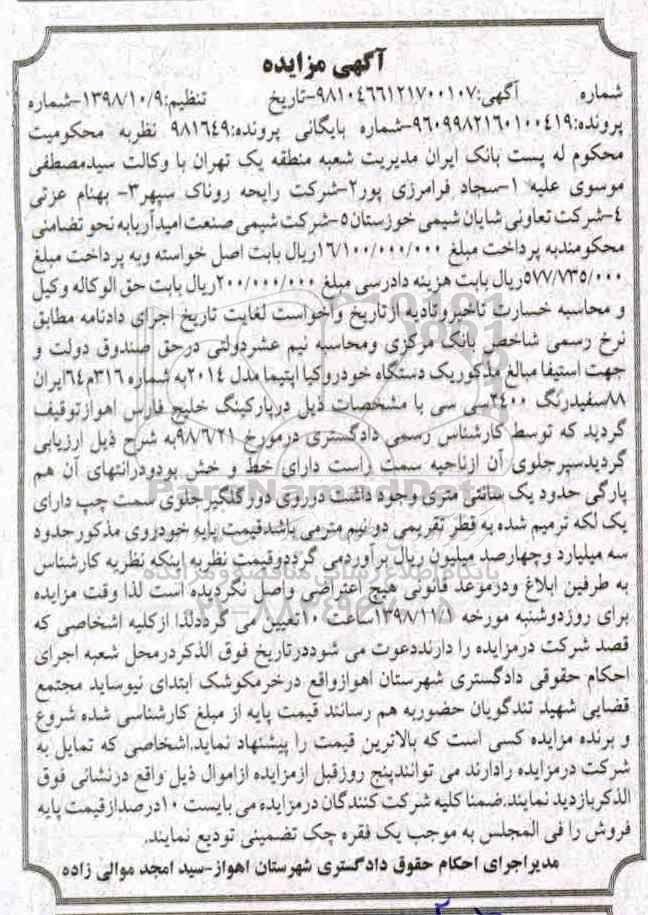 آگهی مزایده
شماره آگهی:۹۸۱۰۴۶۶۱۲۱۷۰۰۱۰۷-تاریخ تنظیم:۱۳۹۸/۱۰/۹-شماره
پرونده:۹۶۰۹۹۸۲۱۶۰۱۰۰۴۱۹-شماره بایگانی پرونده:۹۸۱۶۴۹ نظربه محکومیت
محکوم له پست بانک ایران مدیریت شعبه منطقه یک تهران با وکالت سیدمصطفی
موسوی علیه ۱-سجاد فرامرزی پور۲-شرکت رایحه روناک سپهر۳- بهنام عزتی
۴-شرکت تعاونی شایان شیمی خوزستان۵-شرکت شیمی صنعت امیدآریابه نحو تضامنی
محکومندبه پرداخت مبلغ ۱۶/۱۰۰/۰۰۰/۰۰۰ریال بابت اصل خواسته وبه پرداخت مبلغ
۵۷۷/۷۳۵/۰۰۰ریال بابت هزینه دادرسی مبلغ ۲۰۰/۰۰۰/۰۰۰ریال بابت حق الوکاله وکیل
و محاسبه خسارت تاخیروتادیه ازتاریخ واخواست لغایت تاریخ اجرای دادنامه مطابق
نرخ رسمی شاخص بانک مرکزی ومحاسبه نیم عشردولتی درحق صندوق دولت و
جهت استیفا مبالغ مذکوریک دستگاه خودروکیا اپتیما مدل ۲۰۱۴به شماره ۳۱۶م۶۴ایران
۸۸سفیدرنگ ۲۴۰۰سی سی با مشخصات ذیل درپارکینگ خلیج فارس اهوازتوقیف
گردید که توسط کارشناس رسمی دادگستری درمورخ ۹۸/۶/۲۱به شرح ذیل ارزیابی
گردیدسپرجلوی آن ازناحیه سمت راست دارای خط و خش بودودرانتهای آن هم
پارگی حدود یک سانتی متری وجود داشت درروی دور گلگیر جلوی سمت چپ دارای
یک لکه ترمیم شده به قطر تقریبی دو نیم مترمی باشدقیمت پایه خودروی مذکورحدود
سه میلیارد وچهارصد میلیون ریال برآوردمی گرددوقیمت نظربه اینکه نظریه کارشناس
به طرفین ابلاغ ودرموعد قانونی هیچ اعتراضی واصل نگردیده است لذا وقت مزایده
برای روزدوشنبه مورخه ۱۳۹۸/۱۱/۱ساعت ۱۰تعیین می گرددلذا ازکلیه اشخاصی که
قصد شرکت درمزایده را دارنددعوت می شوددرتاریخ فوق الذکردرمحل شعبه اجرای
احکام حقوقی دادگستری شهرستان اهوازواقع درخرمکوشک ابتدای نیوساید مجتمع
قضایی شهید تندگویان حضوربه هم رسانند قیمت پایه از مبلغ کارشناسی شده شروع
و برنده مزایده کسی است که بالاترین قیمت را پیشنهاد نماید.اشخاصی که تمایل به
شرکت درمزایده رادارند می توانندپنج روزقبل ازمزایده ازاموال ذیل واقع درنشانی فوق
الذکربازدید نمایند.ضمنا کلیه شرکت کنندگان درمزایده می بایست ۱۰درصدازقیمت پایه
فروش را فی المجلس به موجب یک فقره چک تضمینی تودیع نمایند.
مدیراجرای احکام حقوق دادگستری شهرستان اهواز-سید امجد موالی زاده